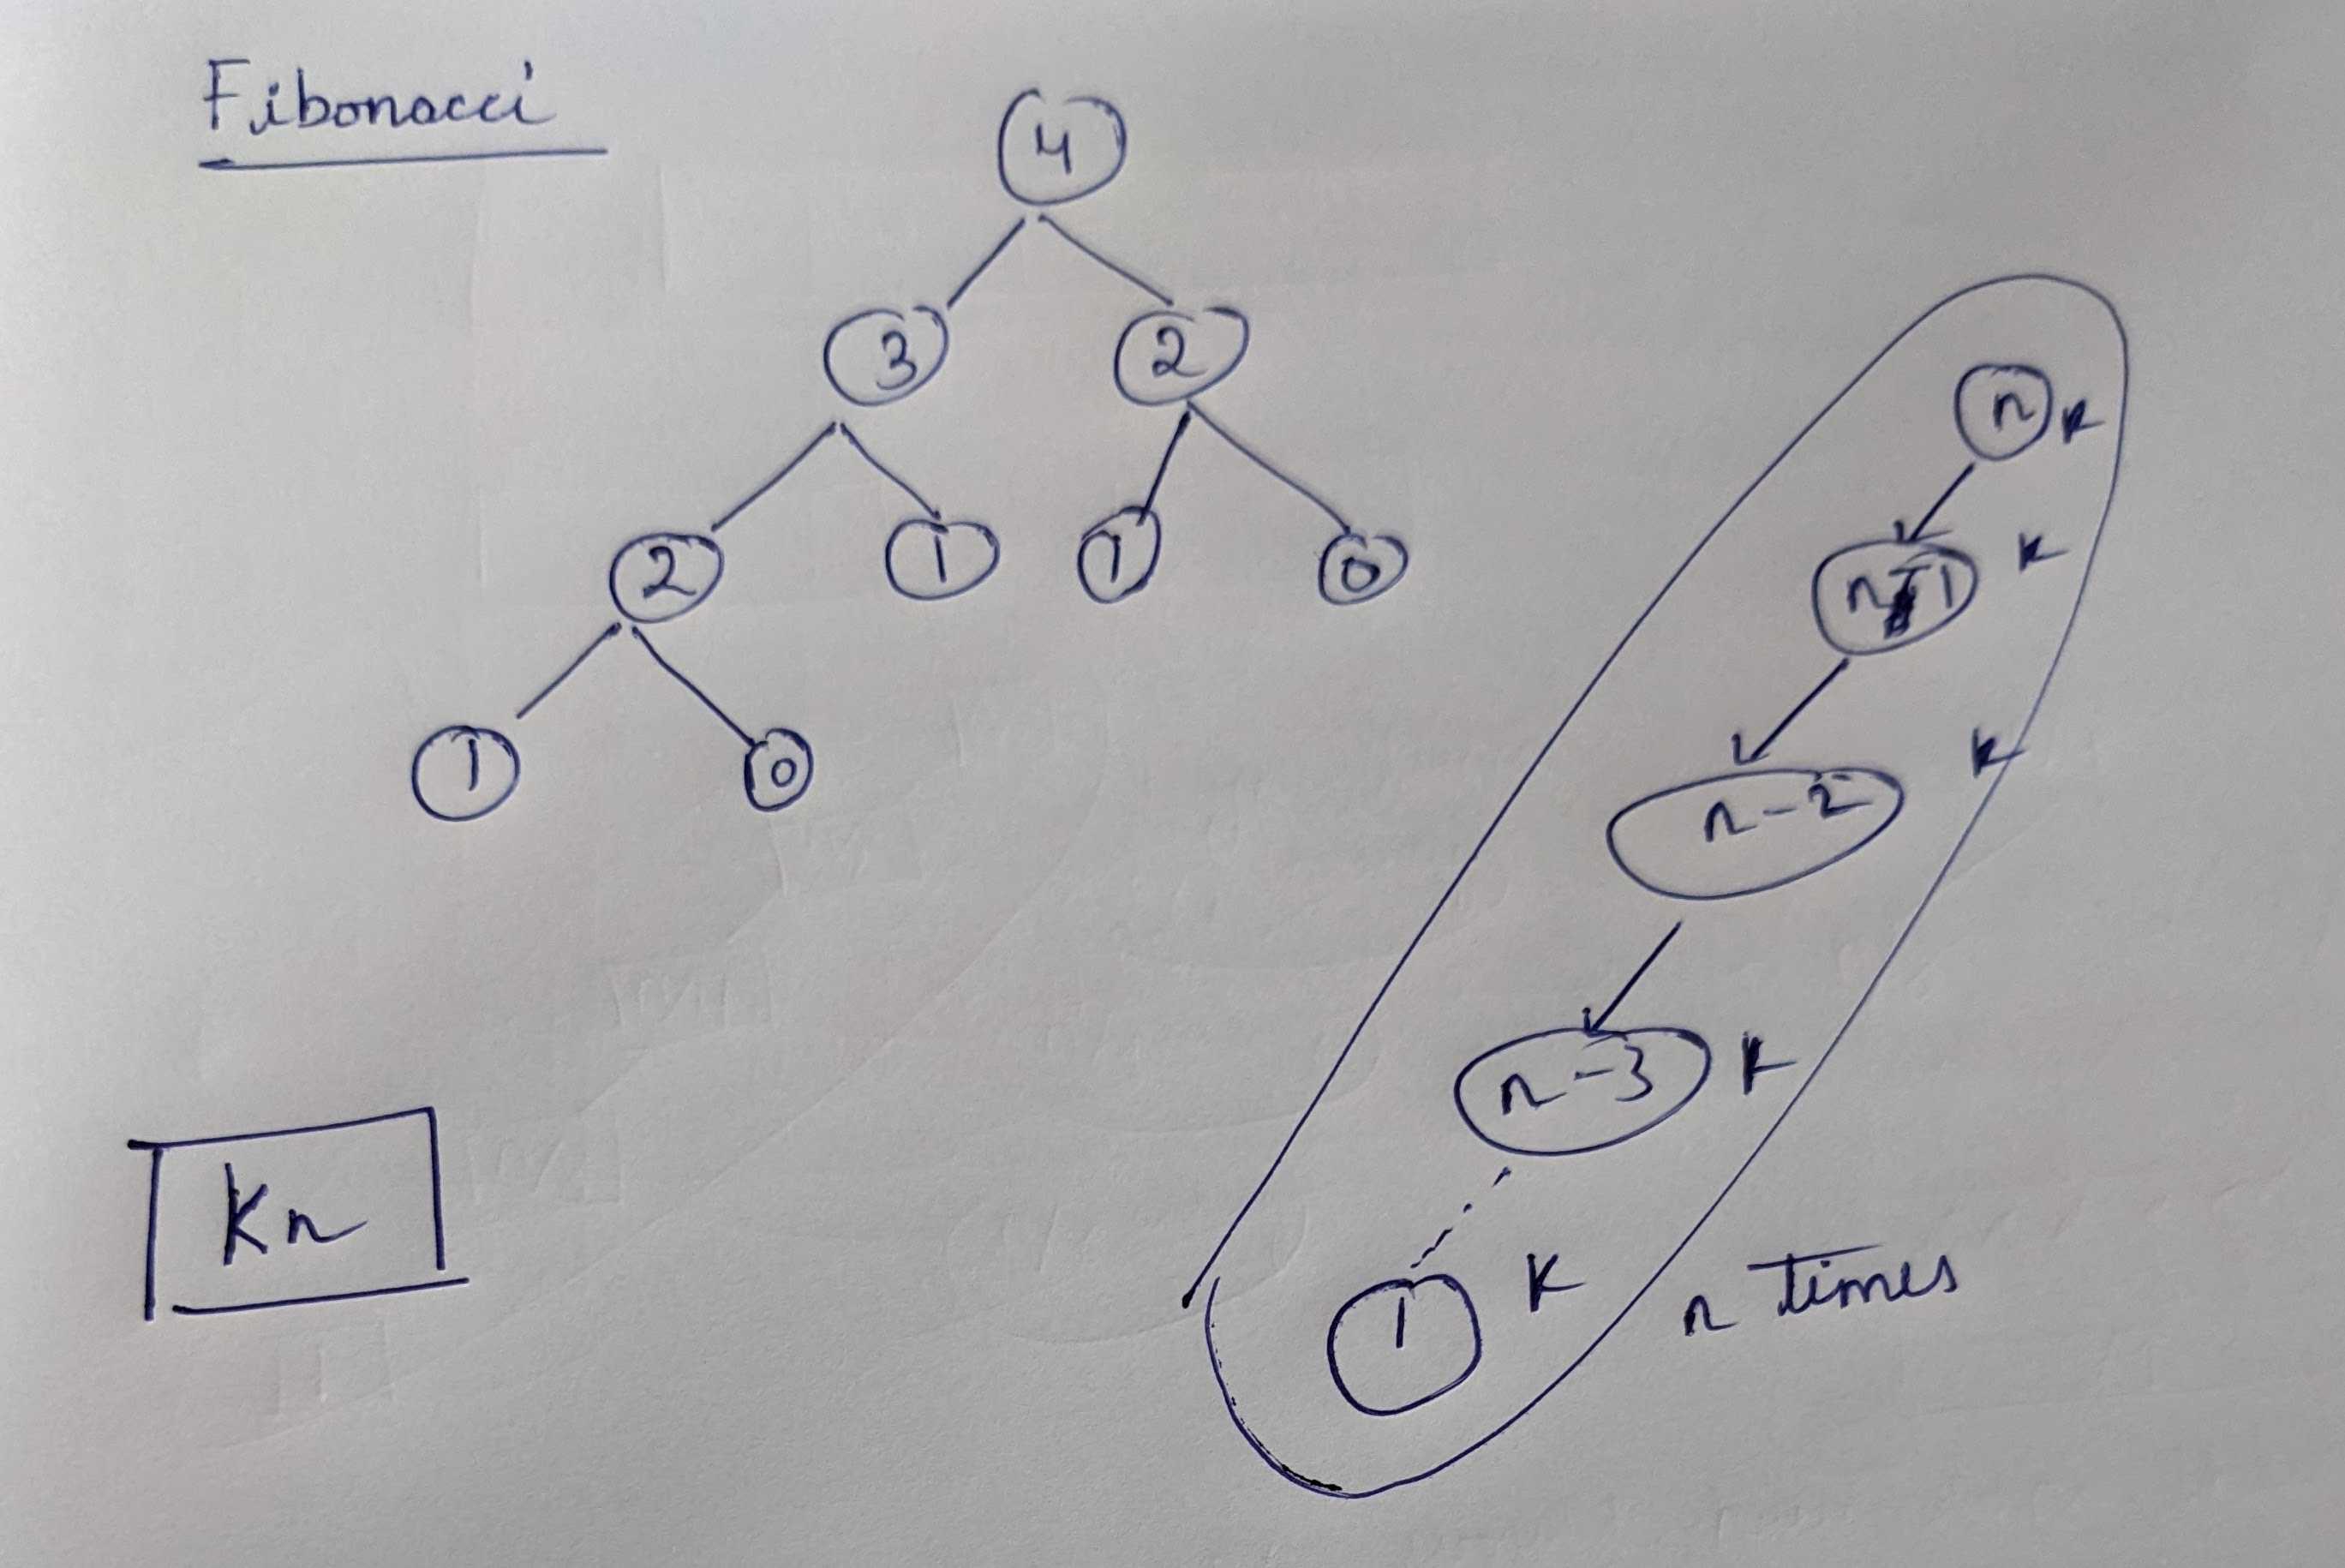 Fibonacci
4
3 2
2 1 1 0
1 0
n K
n-1 K
n-2 K
n-3 K
1 K
n times
Kn